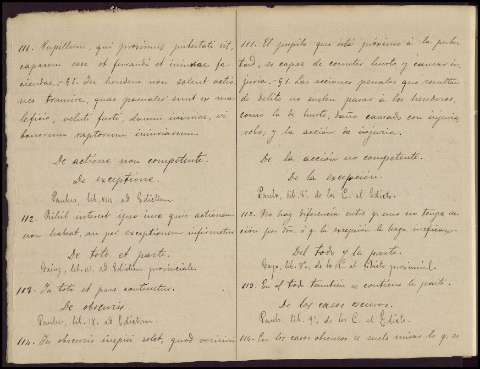 111. Pupillum, qui proximus pubertati sit,
capacem esse et furandi et injuriae fa-
ciendae. § 1. In heredem non solent actio-
nes transire, quae poenales sunt ex ma-
leficio, veluti furti, damni injuriae, vi
bonorum raptorum injuriarum.
De actione non competente.
De exceptione.
Paulus, lib. ad Edictum
112. Nihil interest ipso iure quis actionem
non habeat, an per exceptionem infirmetur
De toto et parte.
Gaius, lib. ad Edictum provinciale
113. In toto et pars continetur.
De obscuris
Paulus, lib. ad Edictum.
114. In obscuris inspici solet, quod verisimi
111. El pupilo que está próximo á la puber-
tad, es capaz de cometer hurto y causar in-
juria. § 1. Las acciones penales que resultan
de delito no suelen pasar á los herederos,
como la de hurto, daño causado con injuria,
robo, y la acción de injuria.
De la acción no competente.
De la excepción.
Paulo, lib. de los C. al Edicto.
112. No hay diferencia entre que uno no tenga ac-
ción por dro. ó q. la excepción la haga ineficaz.
Del todo y la parte.
Gayo, lib. de los al Edicto provincial.
113. En el todo también se contiene la parte.
De los casos oscuros.
Paulo, lib. de los C. al Edicto.
114. En los casos obscuros se suele mirar lo q. es